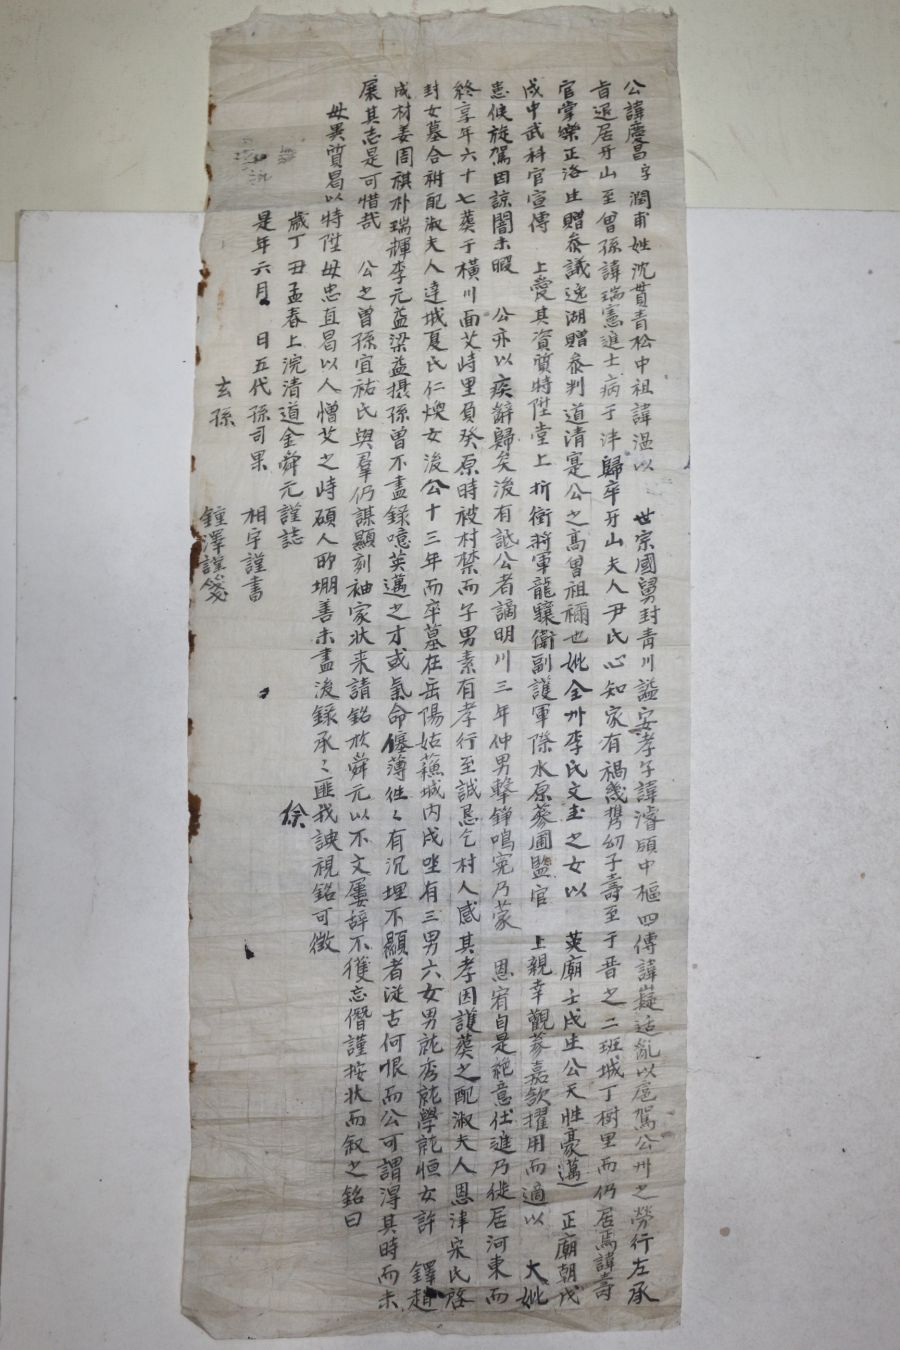 公諱慶昌字潤甫姓沈貫青松中祖諱溫以 世宗國舅封青川謚安孝子諱濬頤中樞四傳諱嶷适亂以扈駕公州之勞行左承
旨退居牙山至曾孫諱瑞憲進士病于泮歸卒牙山夫人尹氏心知家有禍幾携幼子壽至于晋之二班城丁樹里而仍居焉諱壽
官掌樂正洛生贈叅議逸湖贈叅判道清寔公之高曾祖禰也妣全州李氏文圭之女以 英廟壬戌生公天性豪邁 正廟朝戊
戌中武科官宣傳 上愛其資質特陞堂上折衝將軍龍驤衛副護軍除水原蔘圃監官 上親幸觀蔘嘉歎擢用而適以 大妣
恚候旋駕因諒闇未暇 公亦以疾辭歸矣後有詆公者謫明川三年仲男擊錚鳴寃乃蒙 恩宥自是絶意仕進乃徙居河東而
終享年六十七葬于橫川面艾峙里負癸原時被村禁而子男素有孝行至誠恳乞村人感其孝因護葬之配淑夫人恩津宋氏啓
封女墓合祔配淑夫人達城夏氏仁煥女後公十三年而卒墓在岳陽姑蘓城内戌坐有三男六女男就秀就學就恒女許 鐸趙
成材姜周祺朴瑞輝李元益梁益攝孫曾不盡錄噫英邁之才或氣命僿薄徃〻有沉埋不顯者從古何恨而公可謂淂其時而未
展其志是可惜哉 公之曾孫宜祐氏與羣仍謀顯刻袖家狀来請銘於舜元以不文屢辞不獲忘僭謹按状而叙之銘曰
毋異質曷以特陞毋忠直曷以人憎艾之峙碩人所堋善未盡後錄承〻匪我諛視銘可徵
歲丁丑孟春上浣清道金舜元謹誌
徐
是年六月 日五代孫司果 相宇謹書
玄孫 鍾澤謹箋